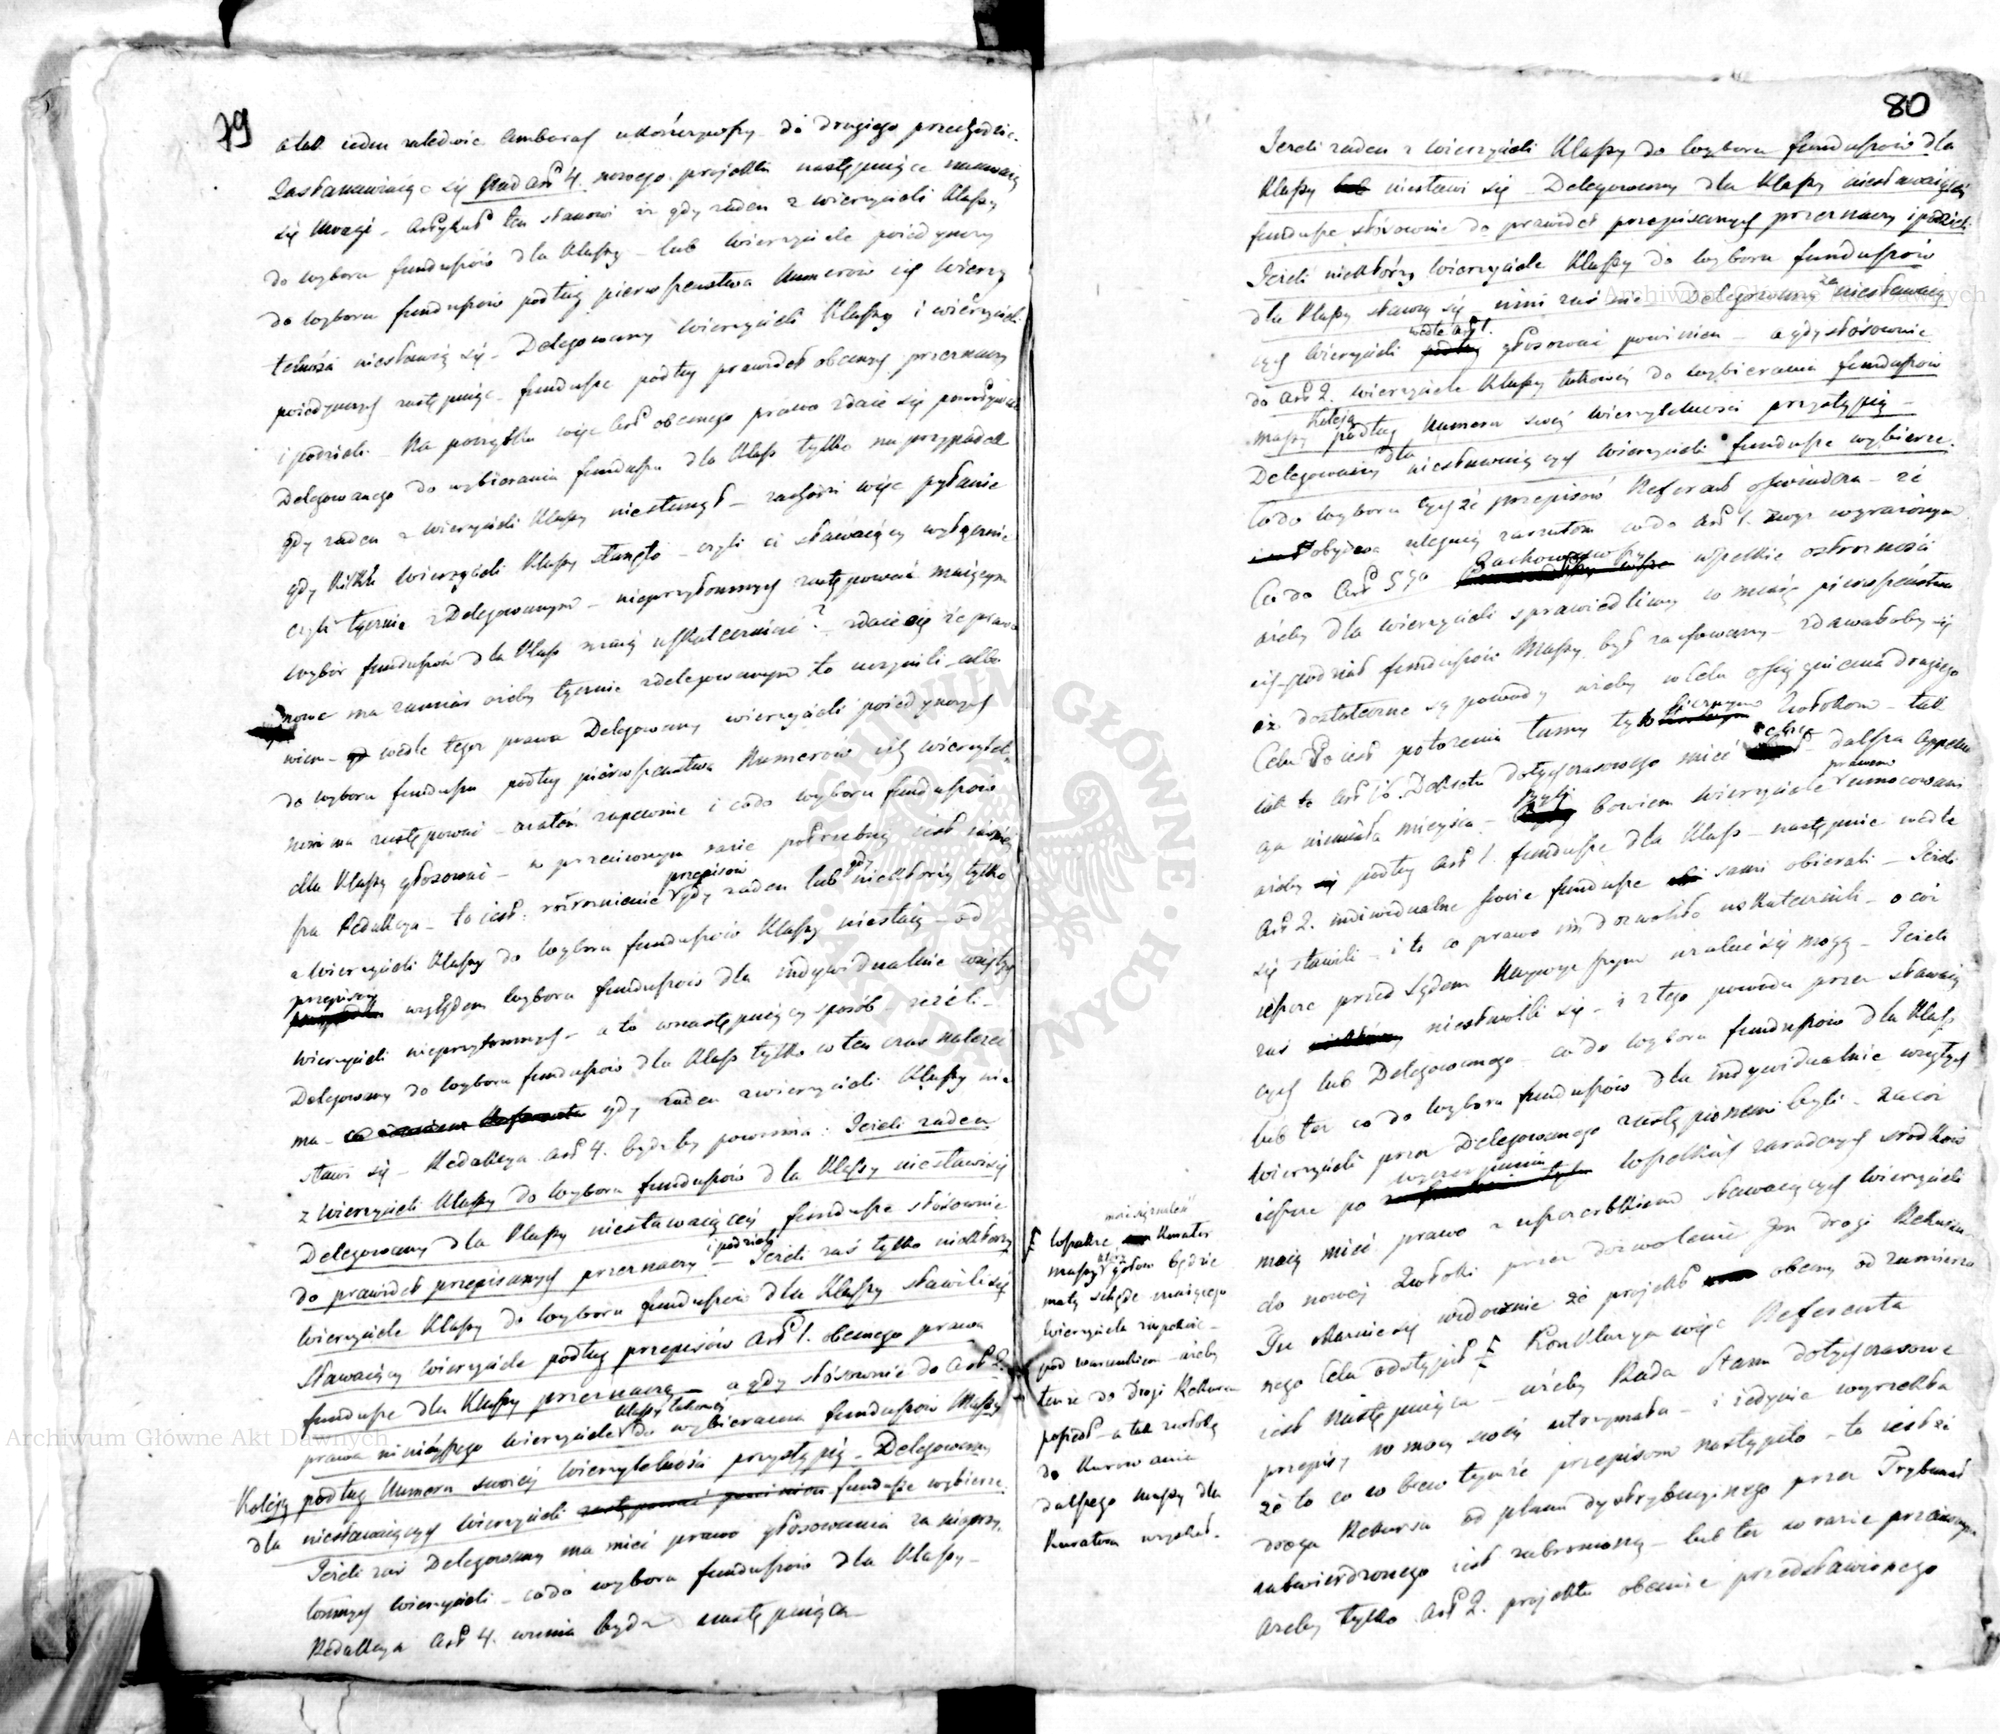 79
a tak ieden zaledwie ambaras ukończywszy do drugiego przechodzić.
Zastanawiaiąc się nad Art 4. nowego projektu następuiące nasuwaią
się uwagi – Artykuł ten stanowi iż gdy żaden z wierzycieli Klassy
do wyboru funduszów dla Klassy – lub wierzyciele poiedynczy
do wyboru funduszów podług pierwszeństwa Numerów ich wierzy
telności niestawią się – Delegowany wierzycieli Klassy i wierzycieli
poiedynczych zastępuiąc – fundusze podług prawideł obecnych przeznaczy
i podzieli – Na początku więc Art obecnego prawa zdaie się
Delegowanego do wybierania funduszu dla Klass tylko na przypadek
gdy żaden z wierzycieli Klassy niestanął – zachodzi więc pytanie
gdy kilku wierzycieli Klassy stanęło – czyli ci stawaiący wyłącznie
czyli łącznie z Delegowanym – nieprzytomnych zastępować maiącym
wybór funduszów dla Klass maią uskutecznić? – zdaie się że prawo
nowe ma zamiar ażeby łącznie z delegowanym to uczynili – albo
wiem – wedle tegoż prawa Delegowany wierzycieli poiedynczych
do wyboru funduszu podług pierwszeństwa Numerów ich wierzytel
ma zastępować – zatem zapewnie i co do wyboru funduszów
dla Klassy głosować – w przeciwnym razie potrzebną iest
sza Redakcya – to iest: rozróżnienie przepisów gdy żaden lub gdy niektórzy tylko
z wierzycieli Klassy do wyboru funduszów Klassy niestaią – od
przepisów względem wyboru funduszów dla indywidualnie wziętych
wierzycieli nieprzytomnych – a to w następuiący sposób – ieżeli
Delegowany do wyboru funduszów dla Klass tylko w ten czas należeć
ma – gdy żaden z wierzycieli Klassy nie
stawi się – Redakcya Art 4. byłaby powinna: Jeżeli żaden
z wierzycieli Klassy do wyboru funduszów dla Klassy niestawi się
Delegowany dla Klassy niestawaiącey fundusze stósownie
do prawideł przepisanych przeznaczy i podzieli – Jeżeli zaś tylko niektórzy
wierzyciele Klassy do wyboru funduszów dla Klassy stawili się
stawaiący wierzyciele podług przepisów Art 1. obecnego prawa
fundusze dla Klassy przeznaczą – a gdy stósownie do Art 2.
prawa ninieyszego wierzyciele Klassy takowey do wybierania funduszów Massy
Koleią podług Numeru swoiey wierzytelności przystąpią – Delegowany
dla niestawaiących wierzycieli zastępować powinien fundusze wybierze.
Jeżeli zaś Delegowany ma mieć prawo głosowania za nieprzy
tomnych wierzycieli – co do wyboru funduszów dla Klassy –
Redakcya Art 4. winna bydź następuiąca
80
Jeżeli żaden z wierzycieli Klassy do wyboru funduszów dla
Klassy niestawi się – Delegowany dla Klassy niestawaiącey
fundusze stósownie do prawideł przepisanych przeznaczy i podzieli.
Jeżeli niektórzy wierzyciele Klassy do wyboru funduszów
dla Klassy stawią się inni zaś nie – Delegowany za niestawaią
cych wierzycieli wedle Art 1. głosować powinien – a gdy stósownie
do Art 2. wierzyciele Klassy takowey do wybierania funduszów
massy Koleią podług Numeru swey wierzytelności przystąpią –
Delegowany dla niestawaiących wierzycieli fundusze wybierze.
Co do wyboru tychże przepisów Referent oświadcza – że
obydwa ulegaią zarzutom co do Art 1. wyż wyrażonym
Co do Art 5go Zachowawszy wszelkie ostrożności
ażeby dla wierzycieli sprawiedliwy w miarę pierwszeństwa
ich podział funduszów Massy był zachowany – zdawałoby się
iż dostateczne są powody ażeby w celu osiągnienia drugiego
Celu to iest położenia tamy tylu licznym Zwłokom – tak
iak to Art 16. Dekretu dotychczasowego mieć chce – dalsza Appella
cya niemiała mieysca – Byli bowiem wierzyciele prawem umocowani
ażeby podług Art 1. fundusze dla Klass – następnie wedle
Art 2. indiwidualne swoie fundusze sami obierali – Jeżeli
się stawili – i to co prawo im dozwoliło uskutecznili – o cóż
ieszcze przed Sądem Naywyższym użalać się mogą – Jeżeli
zaś niestawili się – i z tego powodu przez stawaią
cych lub Delegowanego – co do wyboru funduszów dla Klass
lub też co do wyboru funduszów dla indywidualnie wziętych
wierzycieli przez Delegowanego zastąpionemi byli – za cóż
ieszcze po wyczerpaniu wszelkich zaradczych środków
maią mieć prawo z uszczerbkiem stawaiących wierzycieli
do nowey Zwłoki przez dozwolenie im drogi Rekursu
Tu okazuie się widocznie że projekt obecny od zamierzo
nego Celu odstąpił Konkluzya więc Referenta
iest następuiąca – ażeby Rada Stanu dotychczasowe
przepisy w mocy swoiey utrzymała – i iedynie wyrzekła
że to co w brew tymże przepisom nastąpiło – to iest że
droga Rekursu od planu dystrybucyinego przez Trybunał
zatwierdzonego iest zabronioną – lub też w razie przeciwnym
ażeby tylko Art 2. projektu obecnie przedstawionego
maią znaleść
wszakże Kurator
massy gotow będzie
małą schedę maiącego
wierzyciela
pod warunkiem ażeby
tenże do drogi Rekursu
poszedł – a tak zwłokę
do Kurowania
dalszego massy dla
Kuratora wyrobił.
Archiwum Główne Akt Dawnych
Archiwum Główne Akt Dawnych
ARCHIWUM GŁÓWNE AKT DAWNYCH